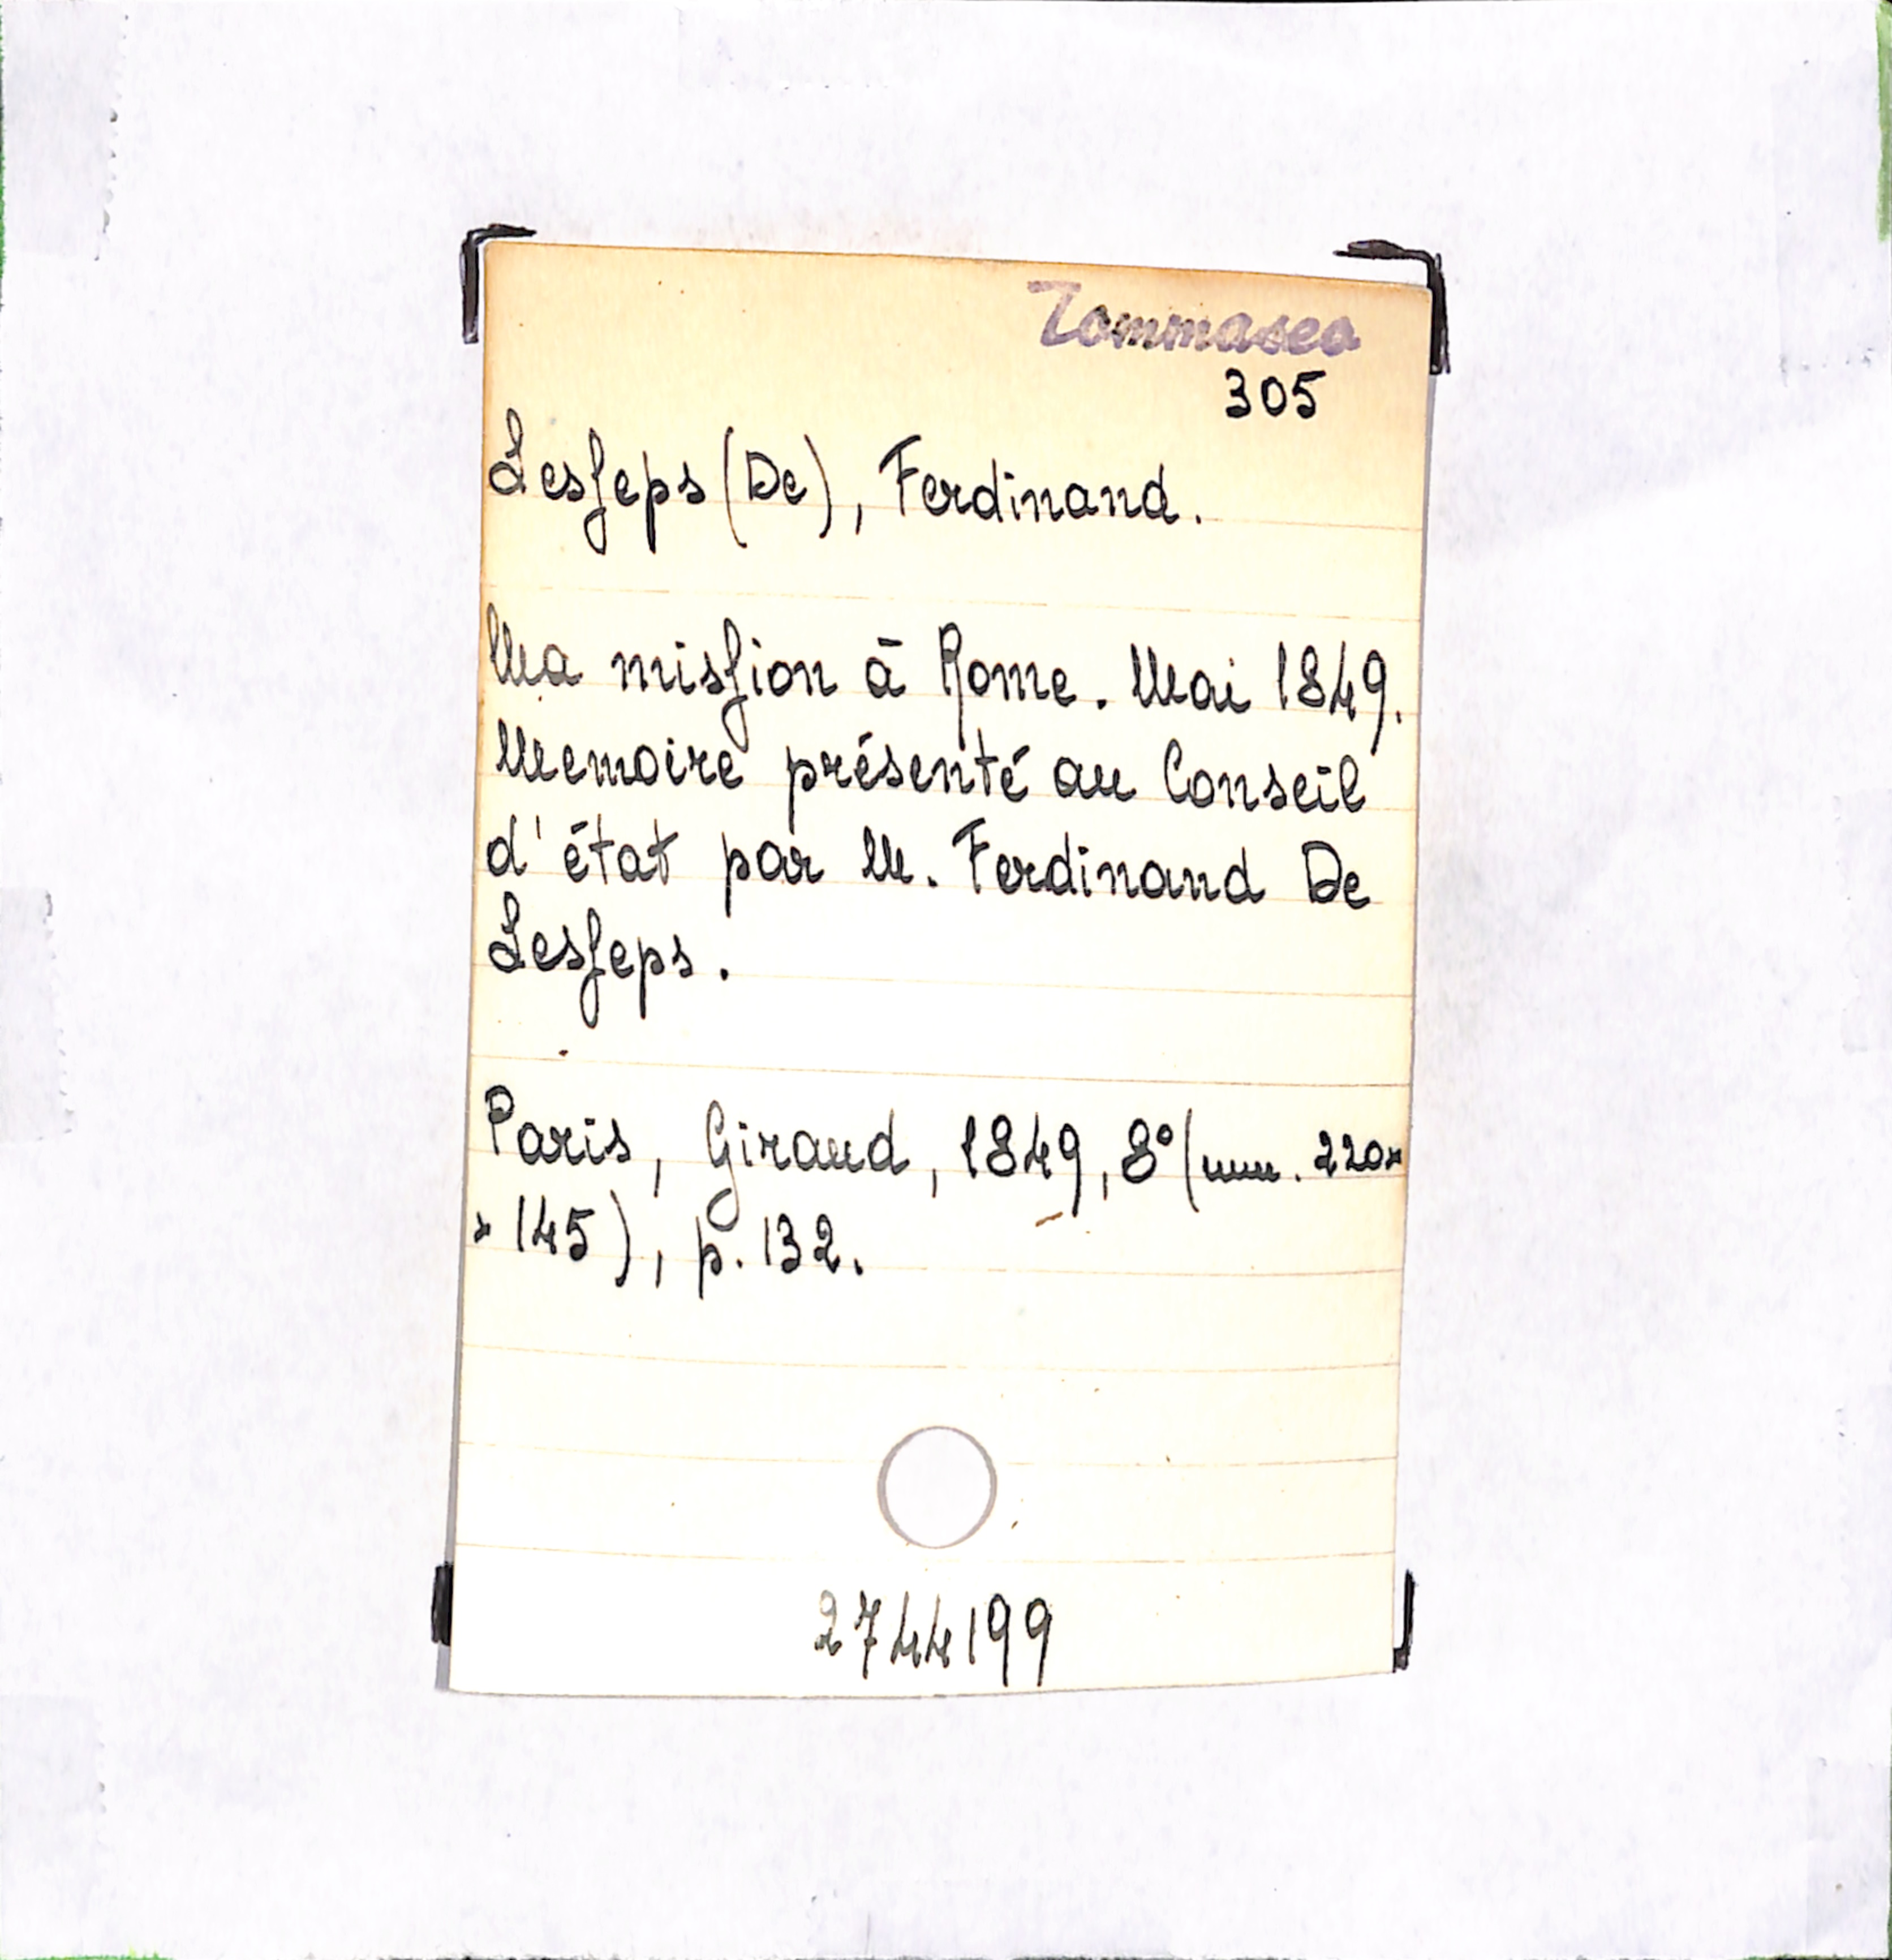 Tommaseo
305
Lesſeps (De), Ferdinand.
Ma misſion à Rome. Mai 1849.
Memoire présenté au Conseil
d'état par M. Ferdinand De
Lesſeps.
Paris, Giraud, 1849, 8° (mm. 220×
× 145), p. 132.
2744199